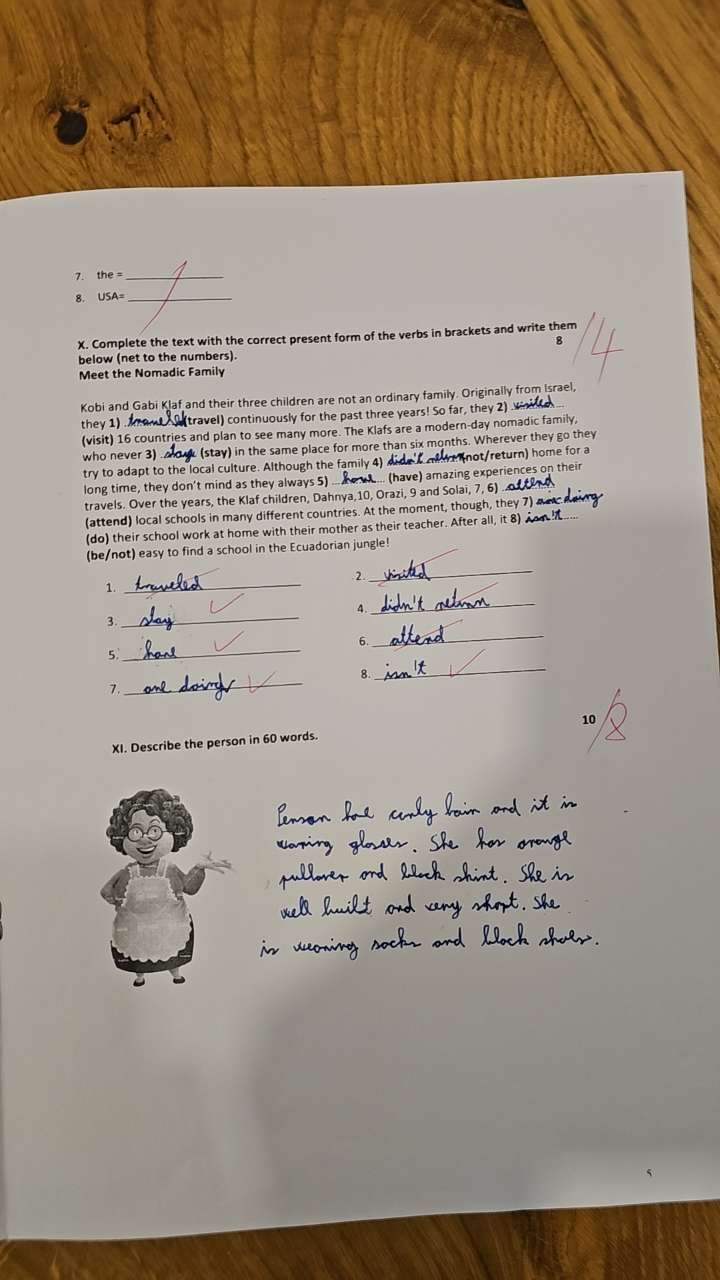 7. the = ____________
8. USA= ____________
X. Complete the text with the correct present form of the verbs in brackets and write them
below (net to the numbers).
8 /4
Meet the Nomadic Family
Kobi and Gabi Klaf and their three children are not an ordinary family. Originally from Israel,
they 1) traveled (travel) continuously for the past three years! So far, they 2) visited
(visit) 16 countries and plan to see many more. The Klafs are a modern-day nomadic family,
who never 3) stay (stay) in the same place for more than six months. Wherever they go they
try to adapt to the local culture. Although the family 4) didn't return (not/return) home for a
long time, they don't mind as they always 5) have (have) amazing experiences on their
travels. Over the years, the Klaf children, Dahnya,10, Orazi, 9 and Solai, 7, 6) attend
(attend) local schools in many different countries. At the moment, though, they 7) are doing
(do) their school work at home with their mother as their teacher. After all, it 8) isn't
(be/not) easy to find a school in the Ecuadorian jungle!
1. traveled 2. visited
3. stay 4. didn't return
5. have 6. attend
7. are doing 8. isn't
XI. Describe the person in 60 words.
10 /8
Person has curly hair and it is
waring glasses. She has orange
pullover and black shirt. She is
well built and very short. She
is wearing socks and black shoes.